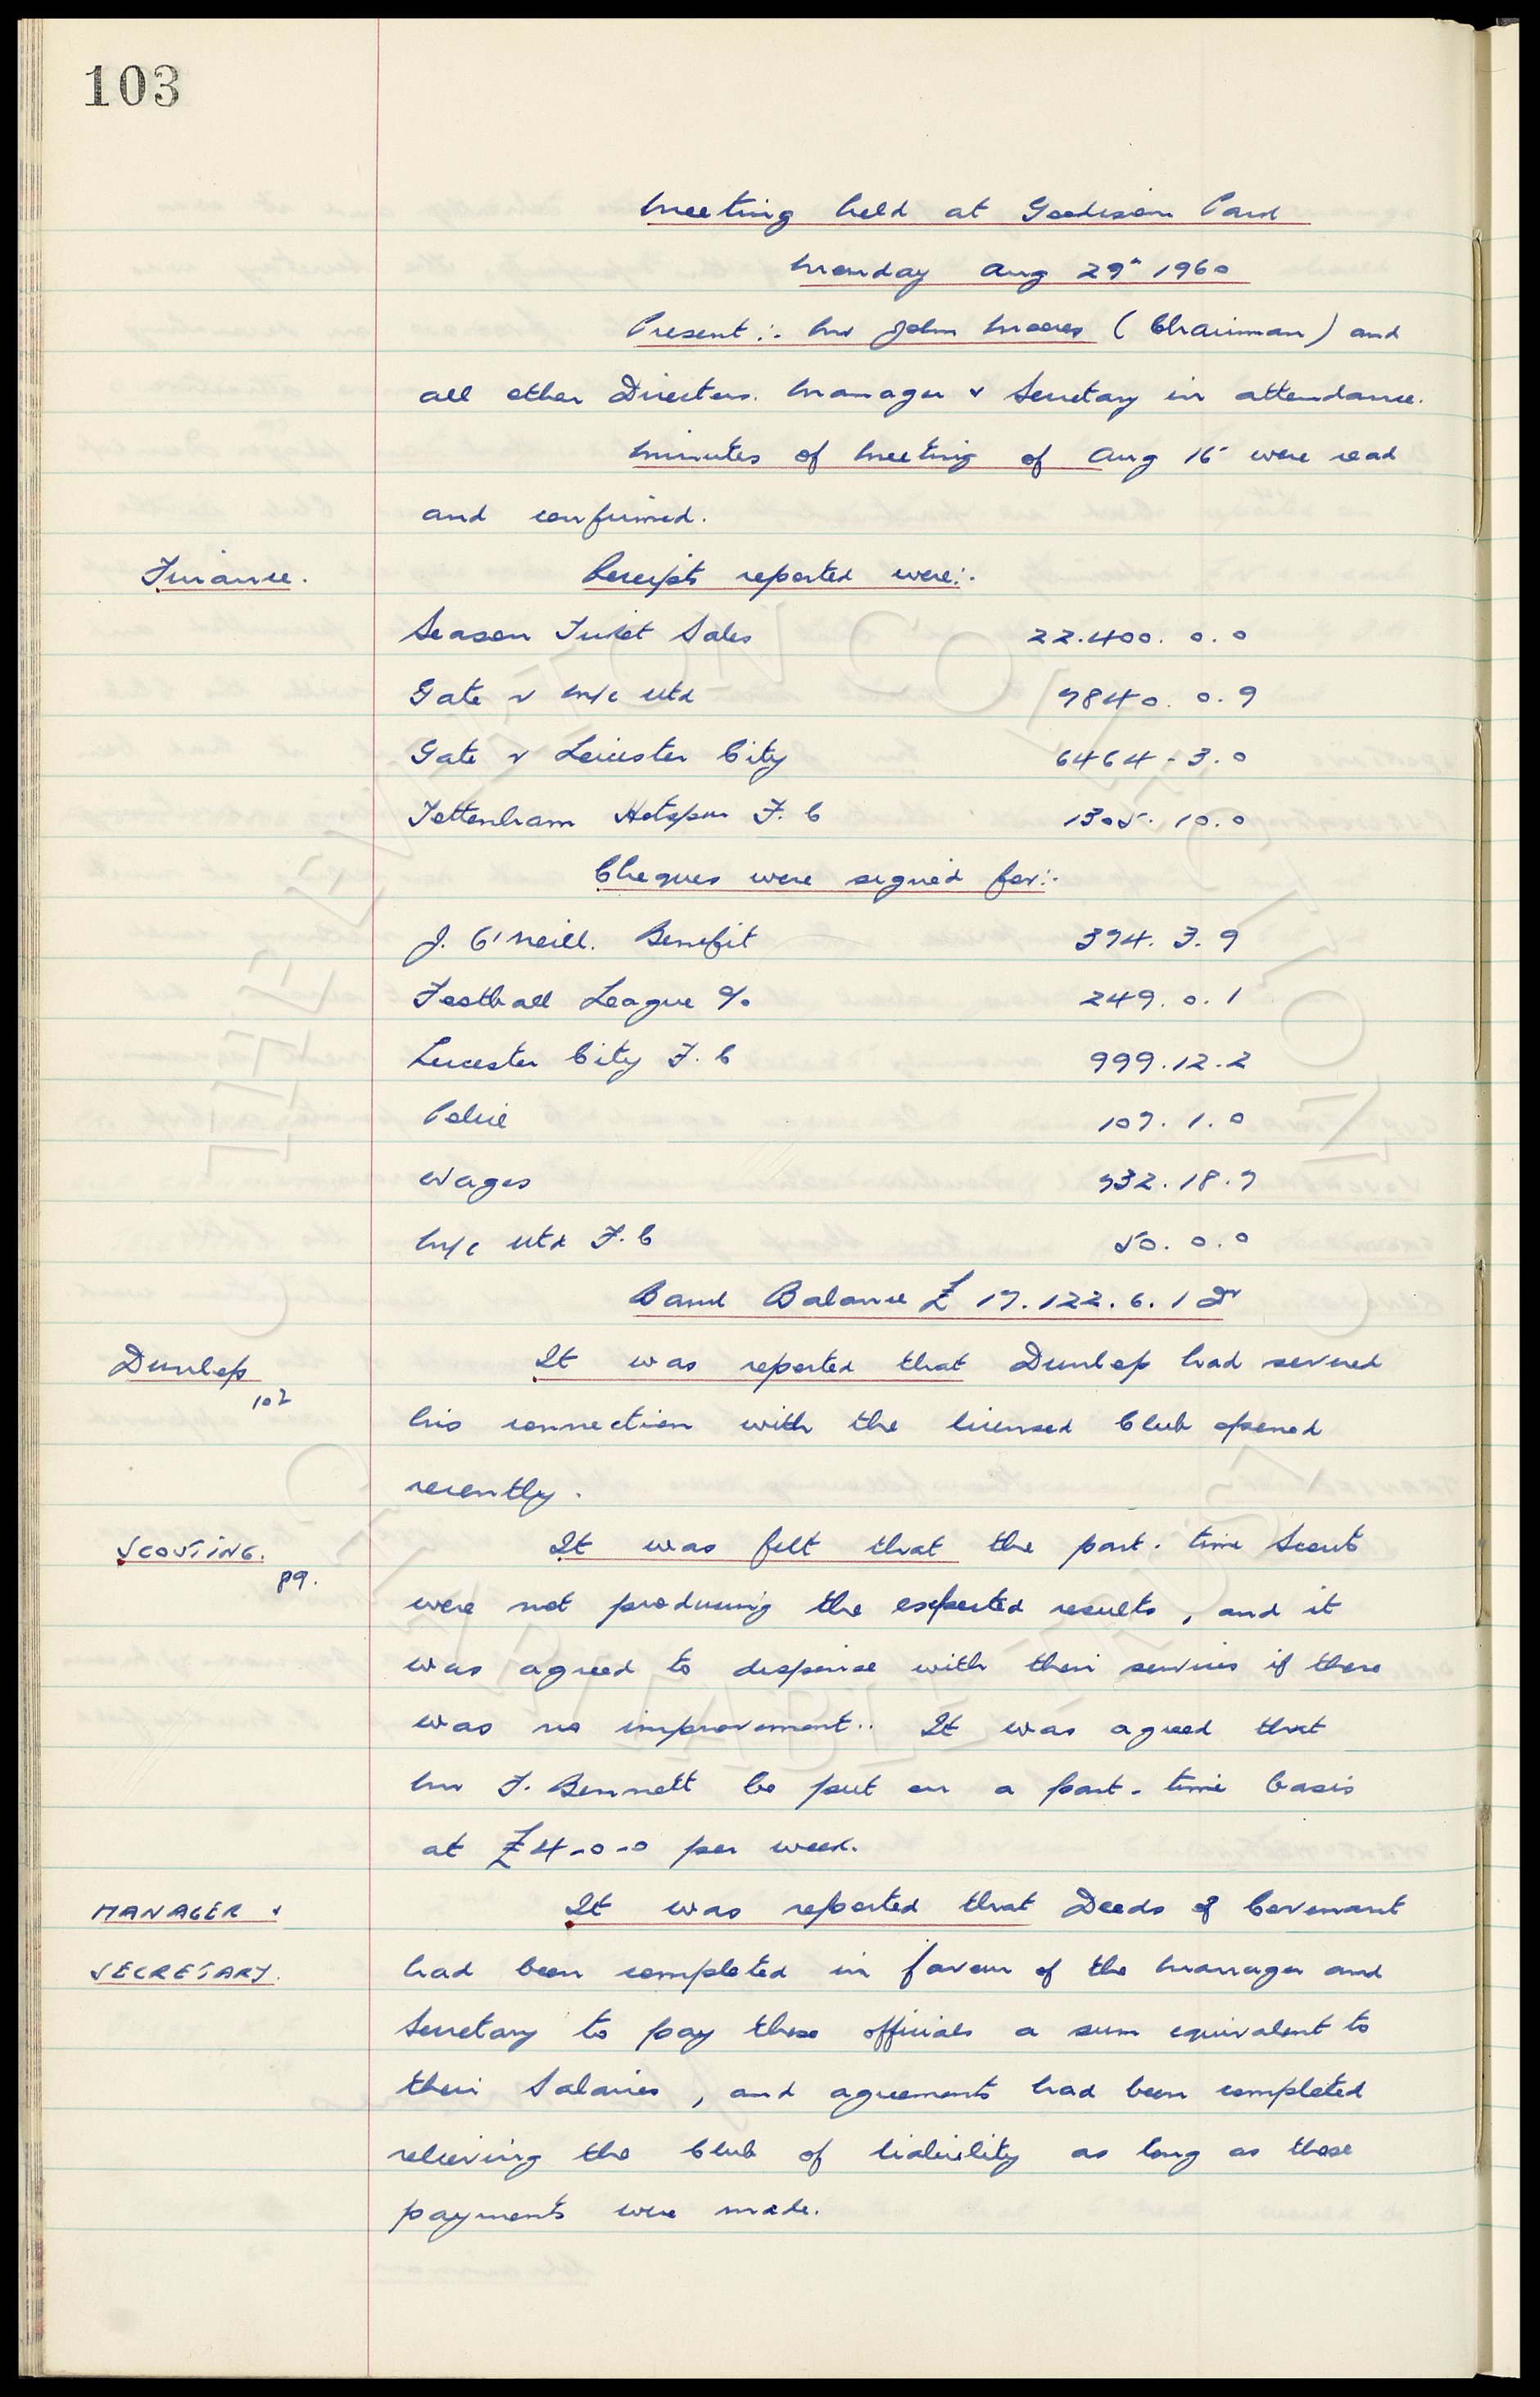 103
Meeting held at Goodison Park
Monday Aug 29" 1960
Present :- Mr John Moores (Chairman) and
all other Directors. Manager & Secretary in attendance.
Minutes of Meeting of Aug 16" were read
and confirmed.
Finance. Receipts reported were:-
Season Ticket Sales 22.400. 0. 0
Gate v M/c Utd 7840. 0. 9
Gate v Leicester City 6464 - 3. 0
Tottenham Hotspur F. C 1305. 10. 0
Cheques were signed for:-
J. O'Neill. Benefit 374. 3. 9
Football League % 249. 0. 1
Leicester City F. C 999. 12. 2
Police 107. 1. 0
Wages 732. 18. 7
M/c Utd F. C 50. 0. 0
Bank Balance £ 17. 122. 6. 1 Dr
Dunlop It was reported that Dunlop had severed
102
his connection with the licensed Club opened
recently.
SCOUTING. It was felt that the part - time Scouts
89.
were not producing the expected results, and it
was agreed to dispense with their services if there
was no improvement.. It was agreed that
Mr F. Bennett be put on a part - time basis
at £4-0-0 per week.
MANAGER & It was reported that Deeds of Covenant
SECRETARY. had been completed in favour of the Manager and
Secretary to pay these officials a sum equivalent to
their Salaries, and agreements had been completed
relieving the Club of liability as long as these
payments were made.